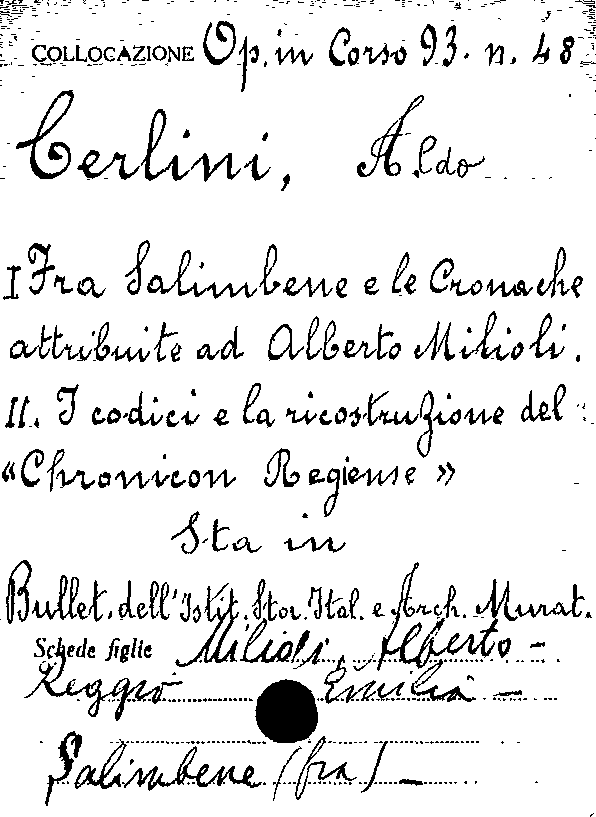 COLLOCAZIONE Op. in Corso 93. n. 48
Cerlini, Aldo
I Fra Salimbene e le Cronache
attribuite ad Alberto Milioli.
II. I codici e la ricostruzione del
«Chronicon Regiense»
Sta in
Bullet. dell'Istit. Stor. Ital. e Arch. Murat.
Schede figlie Milioli, Alberto -
Reggio Emilia -
Salimbene (fra) -